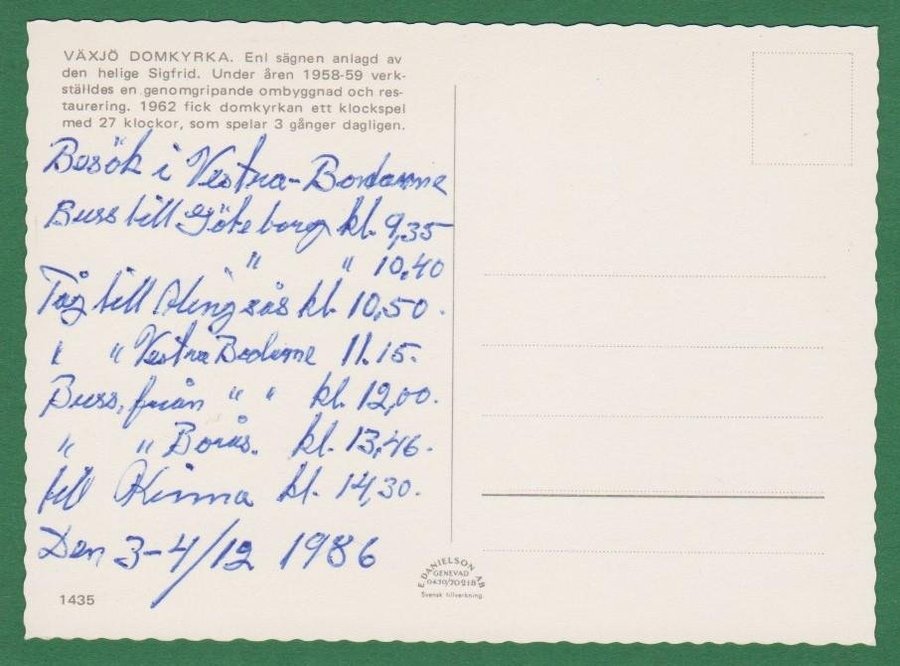 VÄXJÖ DOMKYRKA. Enl sägnen anlagd av
den helige Sigfrid. Under åren 1958-59 verk-
ställdes en genomgripande ombyggnad och res-
taurering. 1962 fick domkyrkan ett klockspel
med 27 klockor, som spelar 3 gånger dagligen.
Besök i Vestra-Bodarne
Buss till Göteborg kl. 9,35
" " 10.40
Tåg till Alingsås kl. 10,50.
" " Vestra Bodarne 11.15.
Buss, från " " kl. 12,00.
" " Borås. kl. 13,46.
till Kinna kl. 14,30.
Den 3-4/12 1986
1435
E. DANIELSON AB
GENEVAD
0430/70218
Svensk tillverkning.